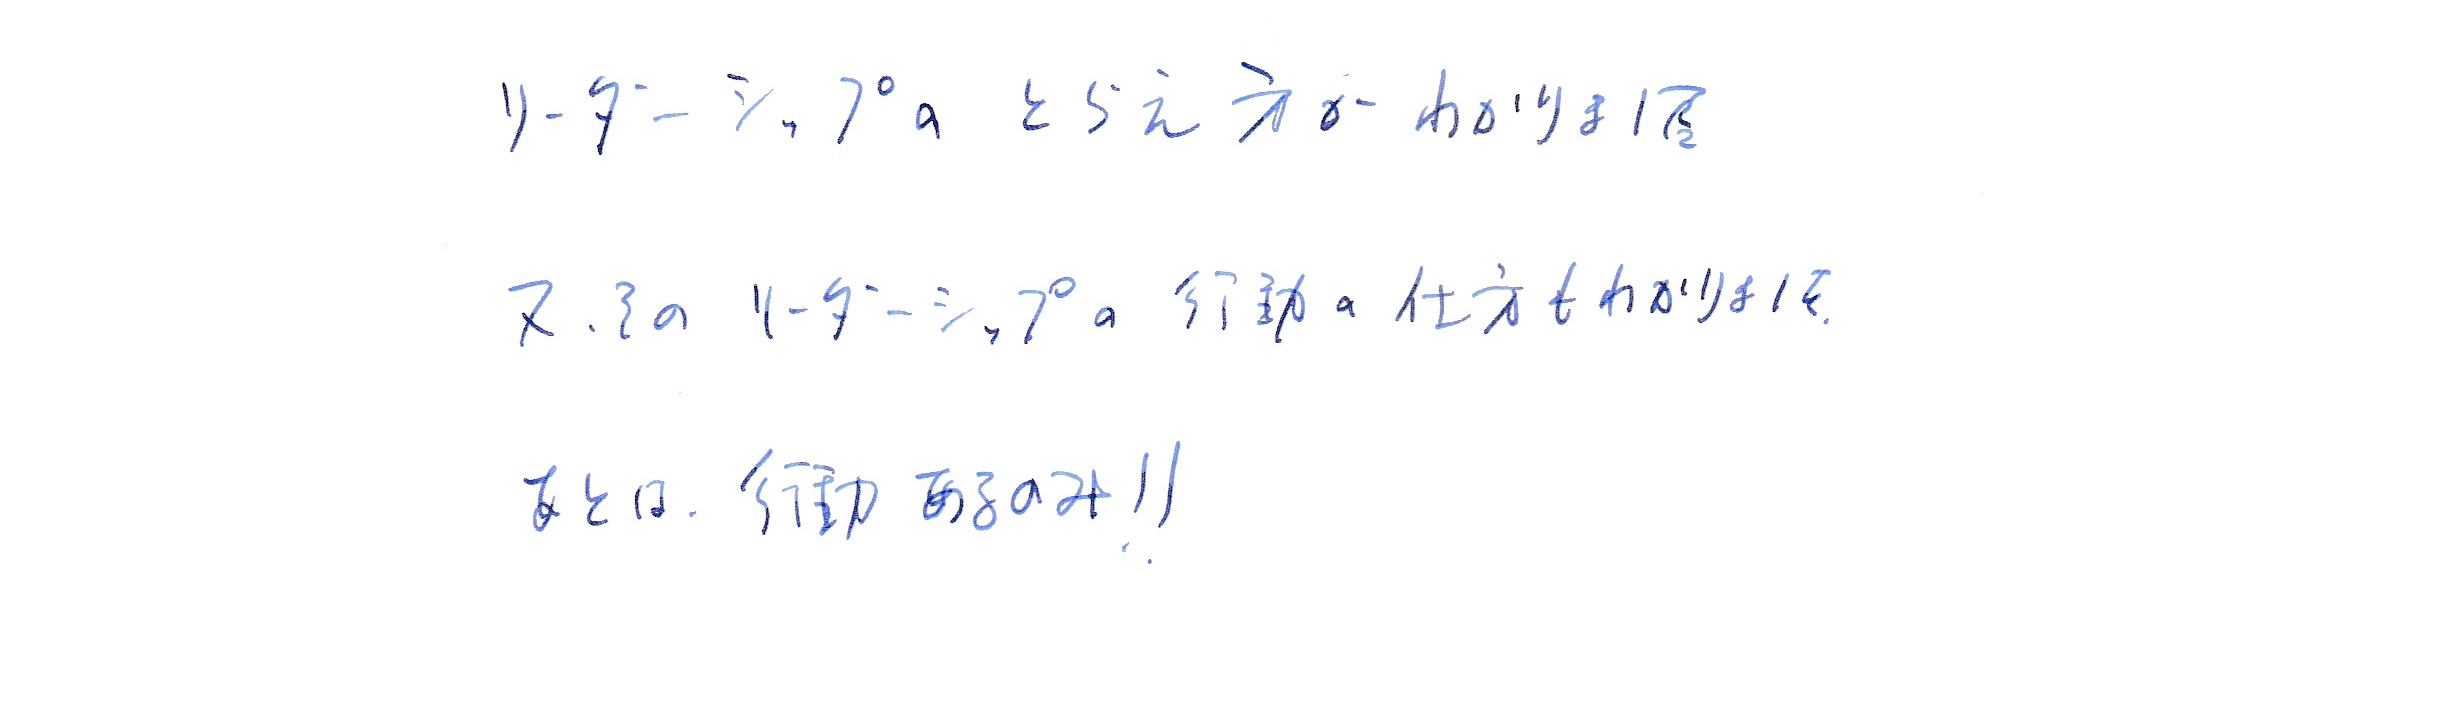 リーダーシップの とらえ方が わかりました
又、その リーダーシップの 行動の 仕方もわかりました。
あとは、行動あるのみ!!